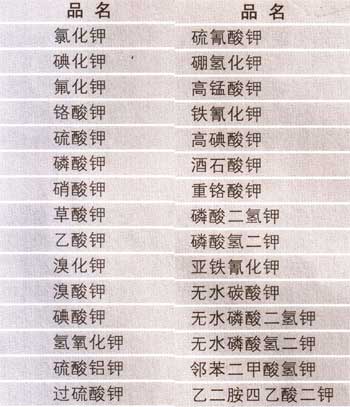 品 名 品 名
氯化钾 硫氰酸钾
碘化钾 硼氢化钾
氟化钾 高锰酸钾
铬酸钾 铁氰化钾
硫酸钾 高碘酸钾
磷酸钾 酒石酸钾
硝酸钾 重铬酸钾
草酸钾 磷酸二氢钾
乙酸钾 磷酸氢二钾
溴化钾 亚铁氰化钾
溴酸钾 无水碳酸钾
碘酸钾 无水磷酸二氢钾
氢氧化钾 无水磷酸氢二钾
硫酸铝钾 邻苯二甲酸氢钾
过硫酸钾 乙二胺四乙酸二钾